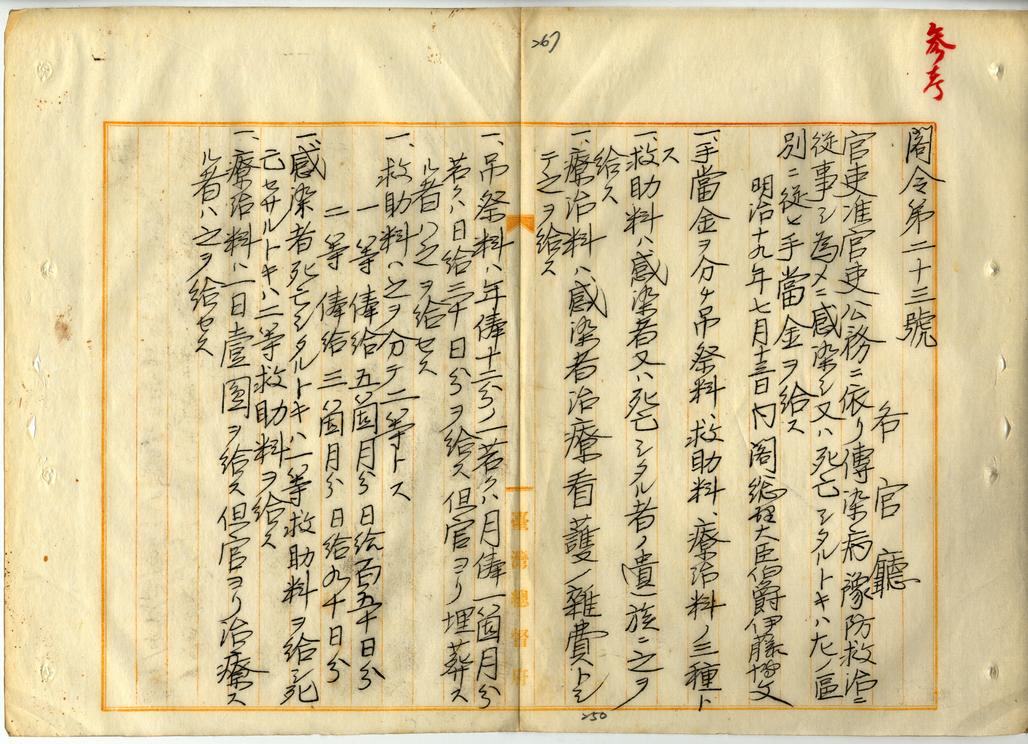 参考
267
閣令第二十三號
各官廳
官吏准官吏公務ニ依リ傳染病豫防救治ニ
従事シ為メニ感染シ又ハ死亡シタルトキハ左ノ區
別ニ従ヒ手當金ヲ給ス
明治十九年七月十三日内閣総理大臣伯爵伊藤博文
一、手當金ヲ分チ吊祭料、救助料、療治料ノ三種ト
ス
一、救助料ハ感染者又ハ死亡シタル者ノ遺族ニ之ヲ
給ス
一、療治料ハ感染者治療看護ノ雜費トシ
テ之ヲ給ス
臺灣總督府
一、吊祭料ハ年俸十二分ノ一若クハ月俸一箇月分
若クハ日給三十日分ヲ給ス但官ヨリ埋葬ス
ル者ハ之ヲ給セス
一、救助料ハ之ヲ分テ二等トス
一等 俸給五箇月分 日給百五十日分
二等 俸給三箇月分 日給九十日分
一、感染者死亡シタルトキハ一等救助料ヲ給シ死
亡セサルトキハ二等救助料ヲ給ス
一、療治料ハ一日壹圓ヲ給ス但官ヨリ治療ス
ル者ハ之ヲ給セス
250